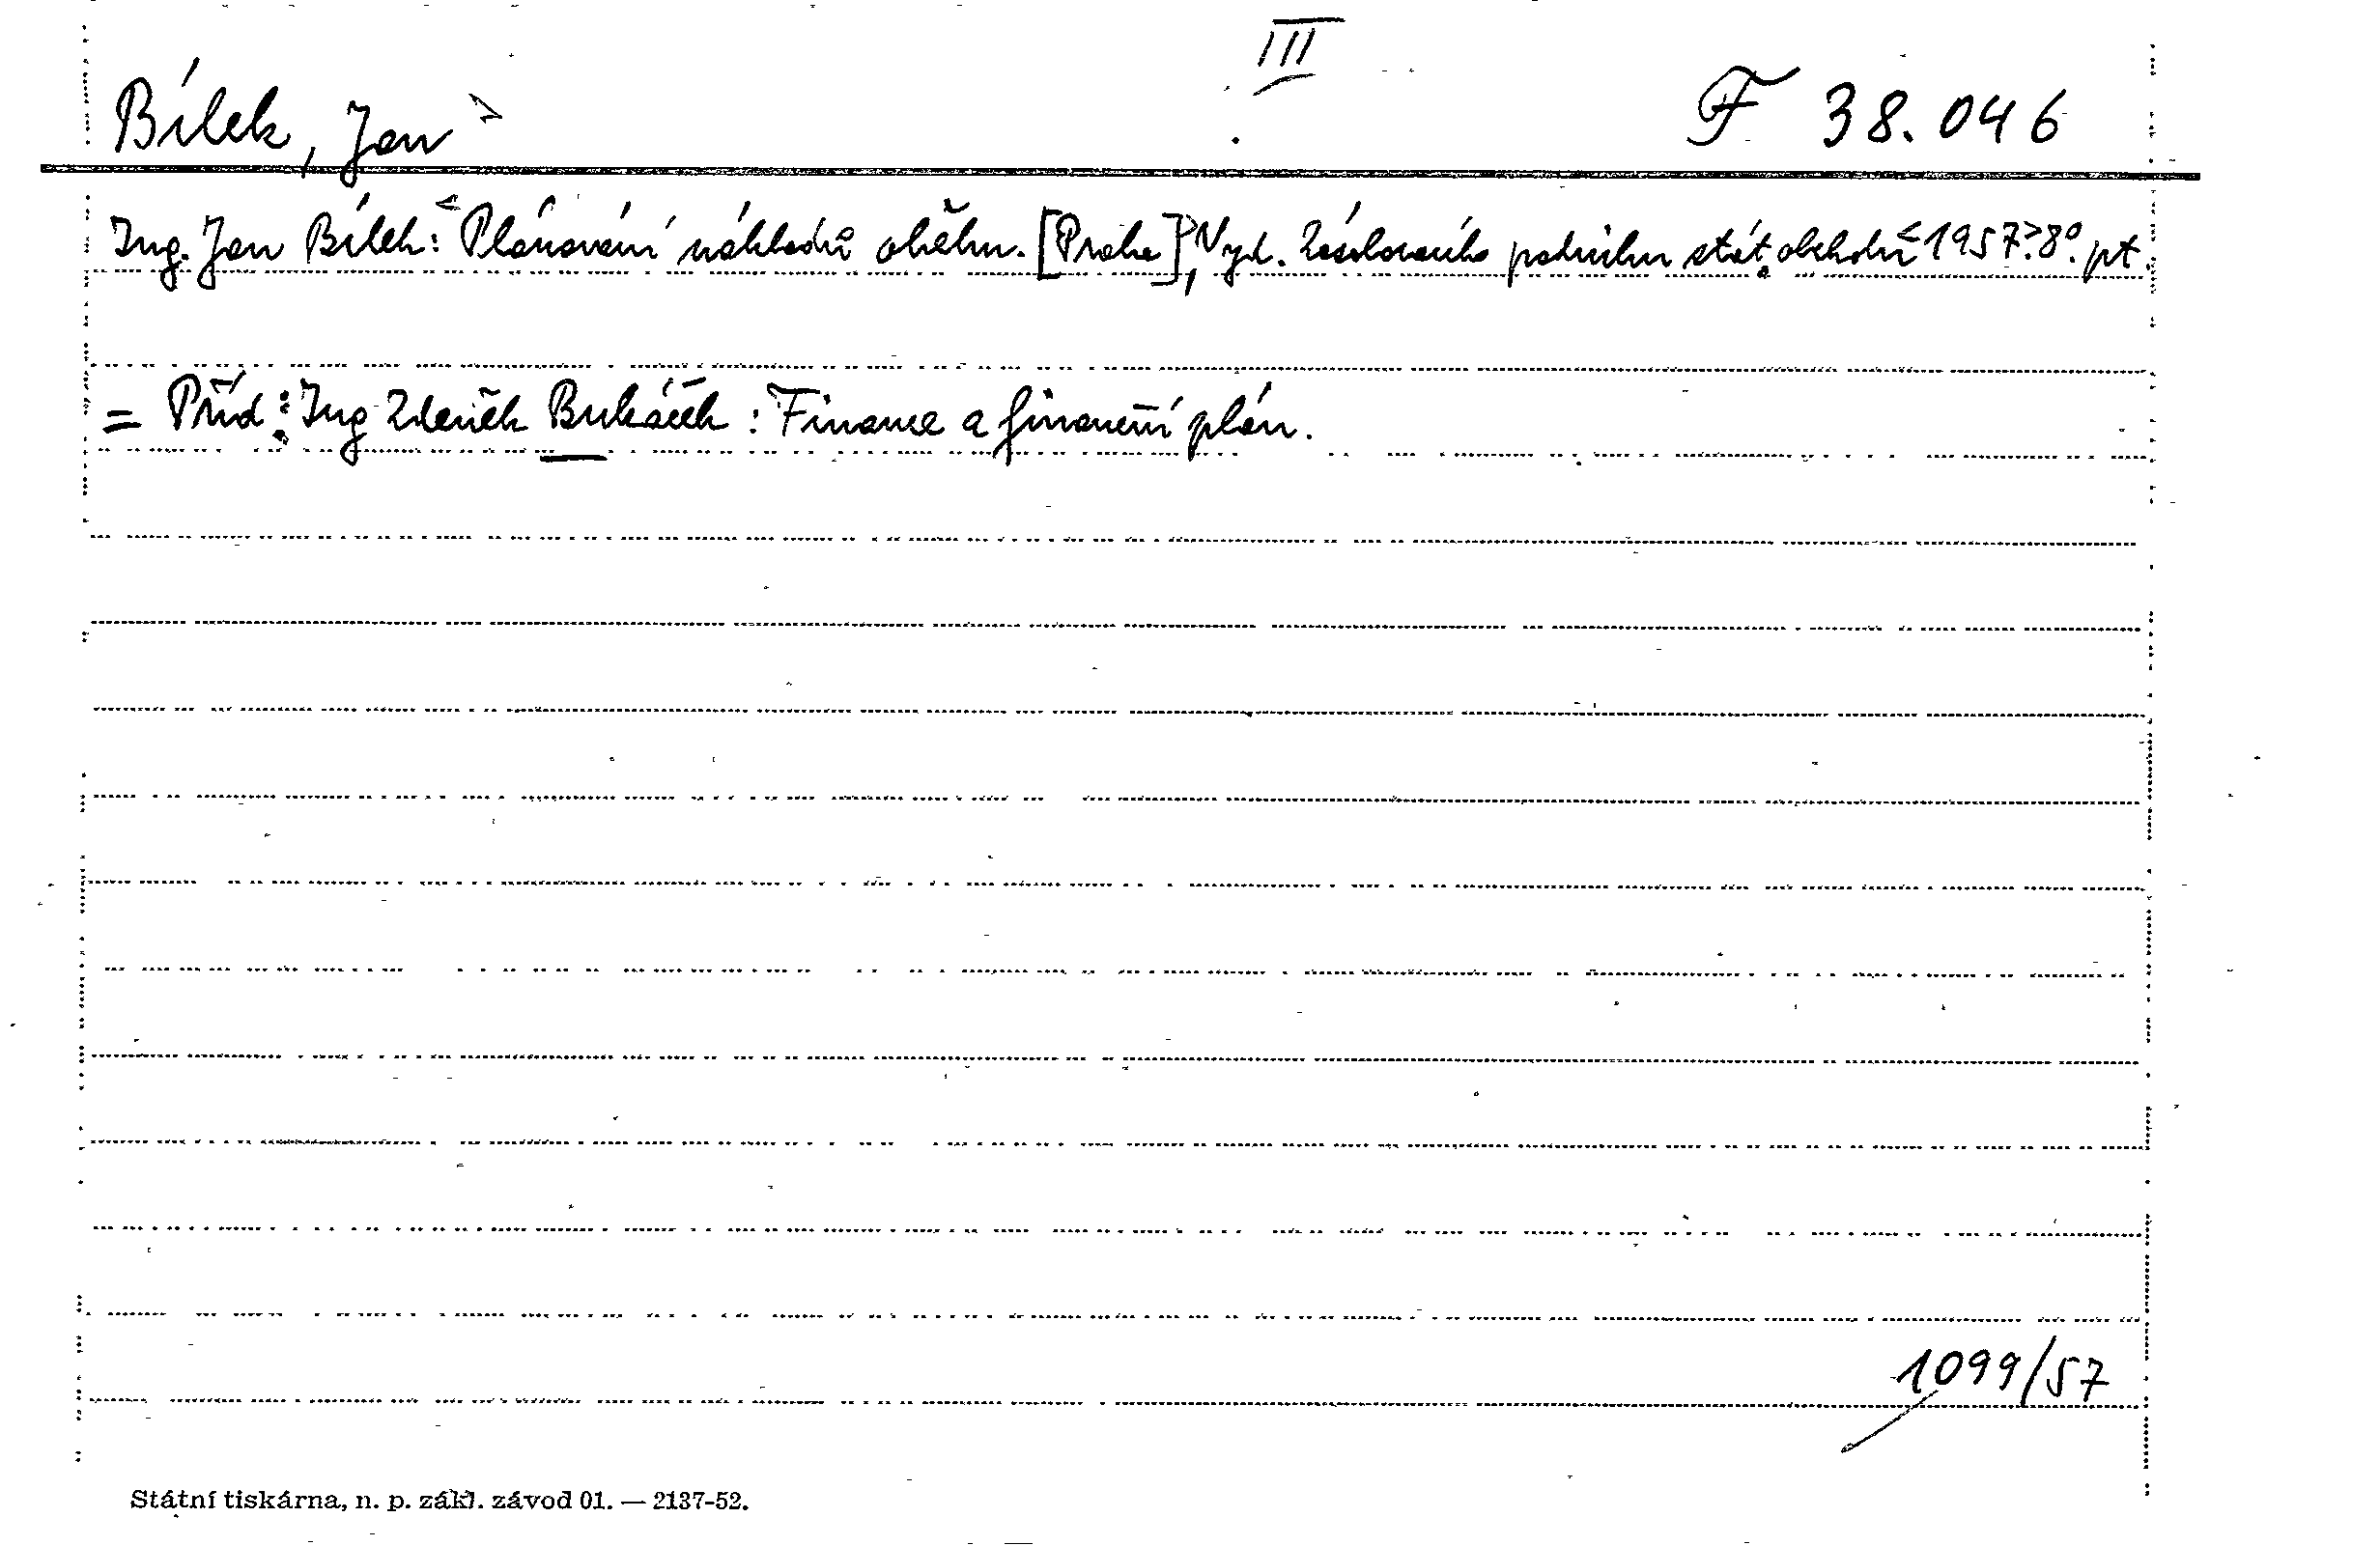 III
Bílek, Jan
F 38.046
Ing. Jan Bílek: Plánování nákladů oběhu. [Praha], Vyd. Zásilkového podniku stát. obchodu <1957.> 8°. pt.
= Příd.: Ing Zdeněk Bukáček: Finance a finanční plán.
1099/57
Státní tiskárna, n. p. zákl. závod 01. — 2137-52.